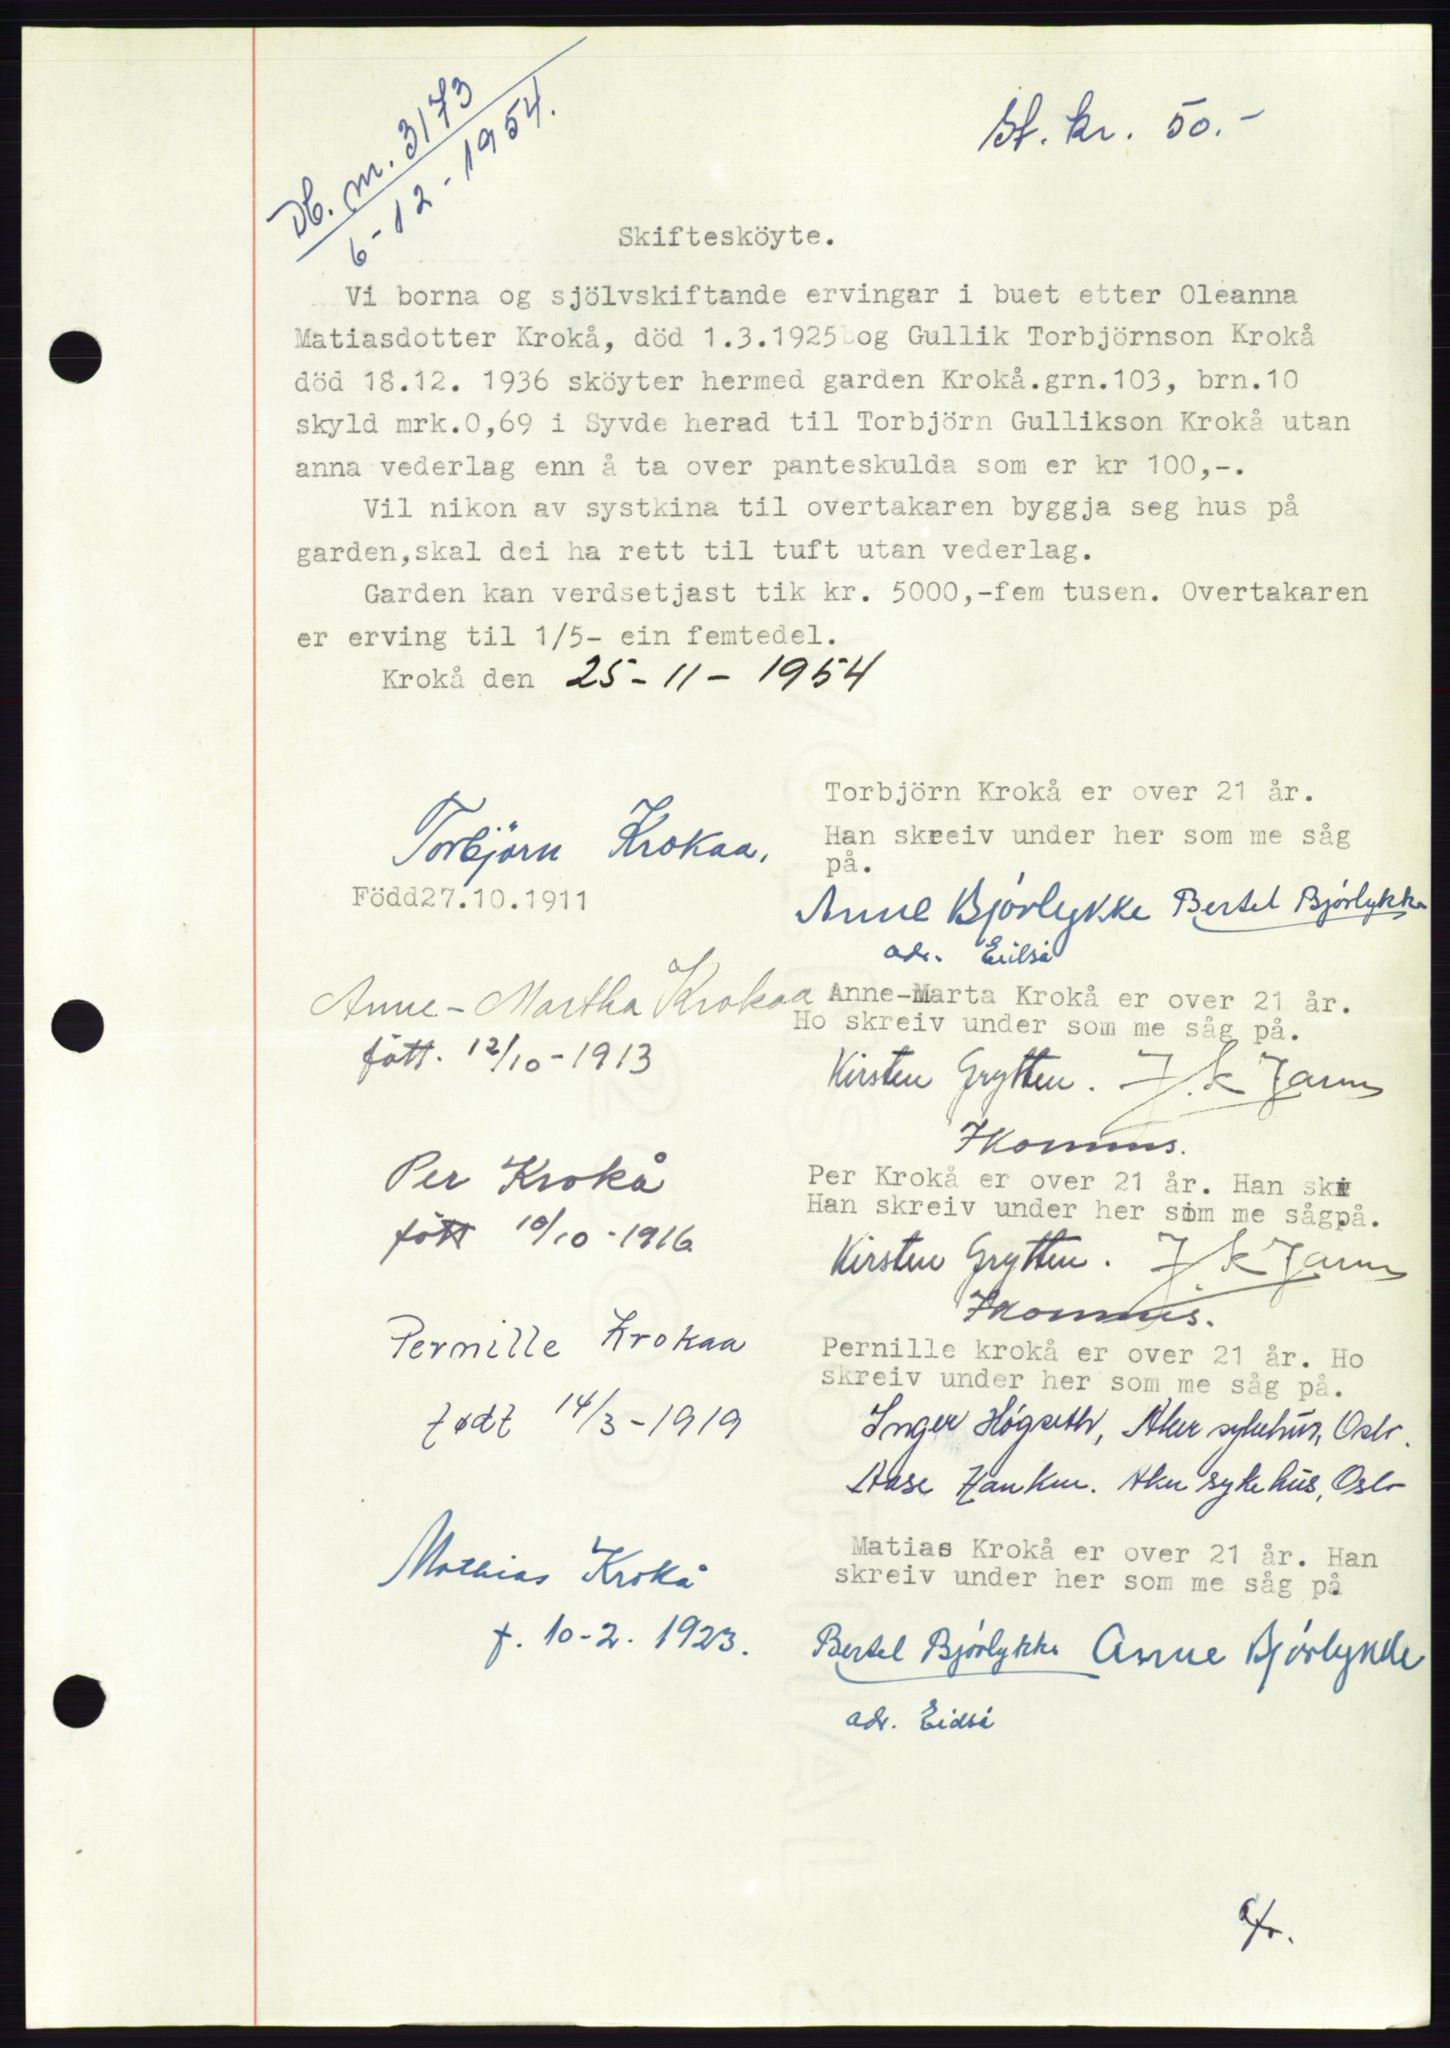 Db. nr. 3173
6-12-1954.
St. kr. 50.-
Skiftesköyte.
Vi borna og sjölvskiftande ervingar i buet etter Oleanna
Matiasdotter Krokå, död 1.3.1925 og Gullik Torbjörnson Krokå
död 18.12. 1936 sköyter hermed garden Krokå.grn.103, brn.10
skyld mrk.0,69 i Syvde herad til Torbjörn Gullikson Krokå utan
anna vederlag enn å ta over panteskulda som er kr 100,-.
Vil nikon av systkina til overtakaren byggja seg hus på
garden,skal dei ha rett til tuft utan vederlag.
Garden kan verdsetjast tik kr. 5000,-fem tusen. Overtakaren
er erving til 1/5- ein femtedel.
Krokå den 25-11-1954
Torbjörn Krokå er over 21 år.
Han skreiv under her som me såg
på.
Torbjörn Krokaa.
Född27.10.1911
Anne Bjørlykke Bertel Bjørlykke
adr. Eidså
Anne-Martha Krokaa
Anne-Marta Krokå er over 21 år.
Ho skreiv under som me såg på.
født. 12/10-1913
Kirsten Grytten. J. k
Per Krokå
Per Krokå er over 21 år. Han skr
Han skreiv under her som me sågpå.
født 10/10-1916
Kirsten Grytten. J. k
Pernille Krokaa
Pernille krokå er over 21 år. Ho
skreiv under her som me såg på.
født 14/3-1919
Inger Høgseth, Aker sykehus, Oslo.
Aase Aker sykehus, Oslo
Mathias Krokå
Matias Krokå er over 21 år. Han
skreiv under her som me såg på
f. 10-2. 1923.
Bertel Bjørlykke Anne Bjørlykke
adr. Eidså